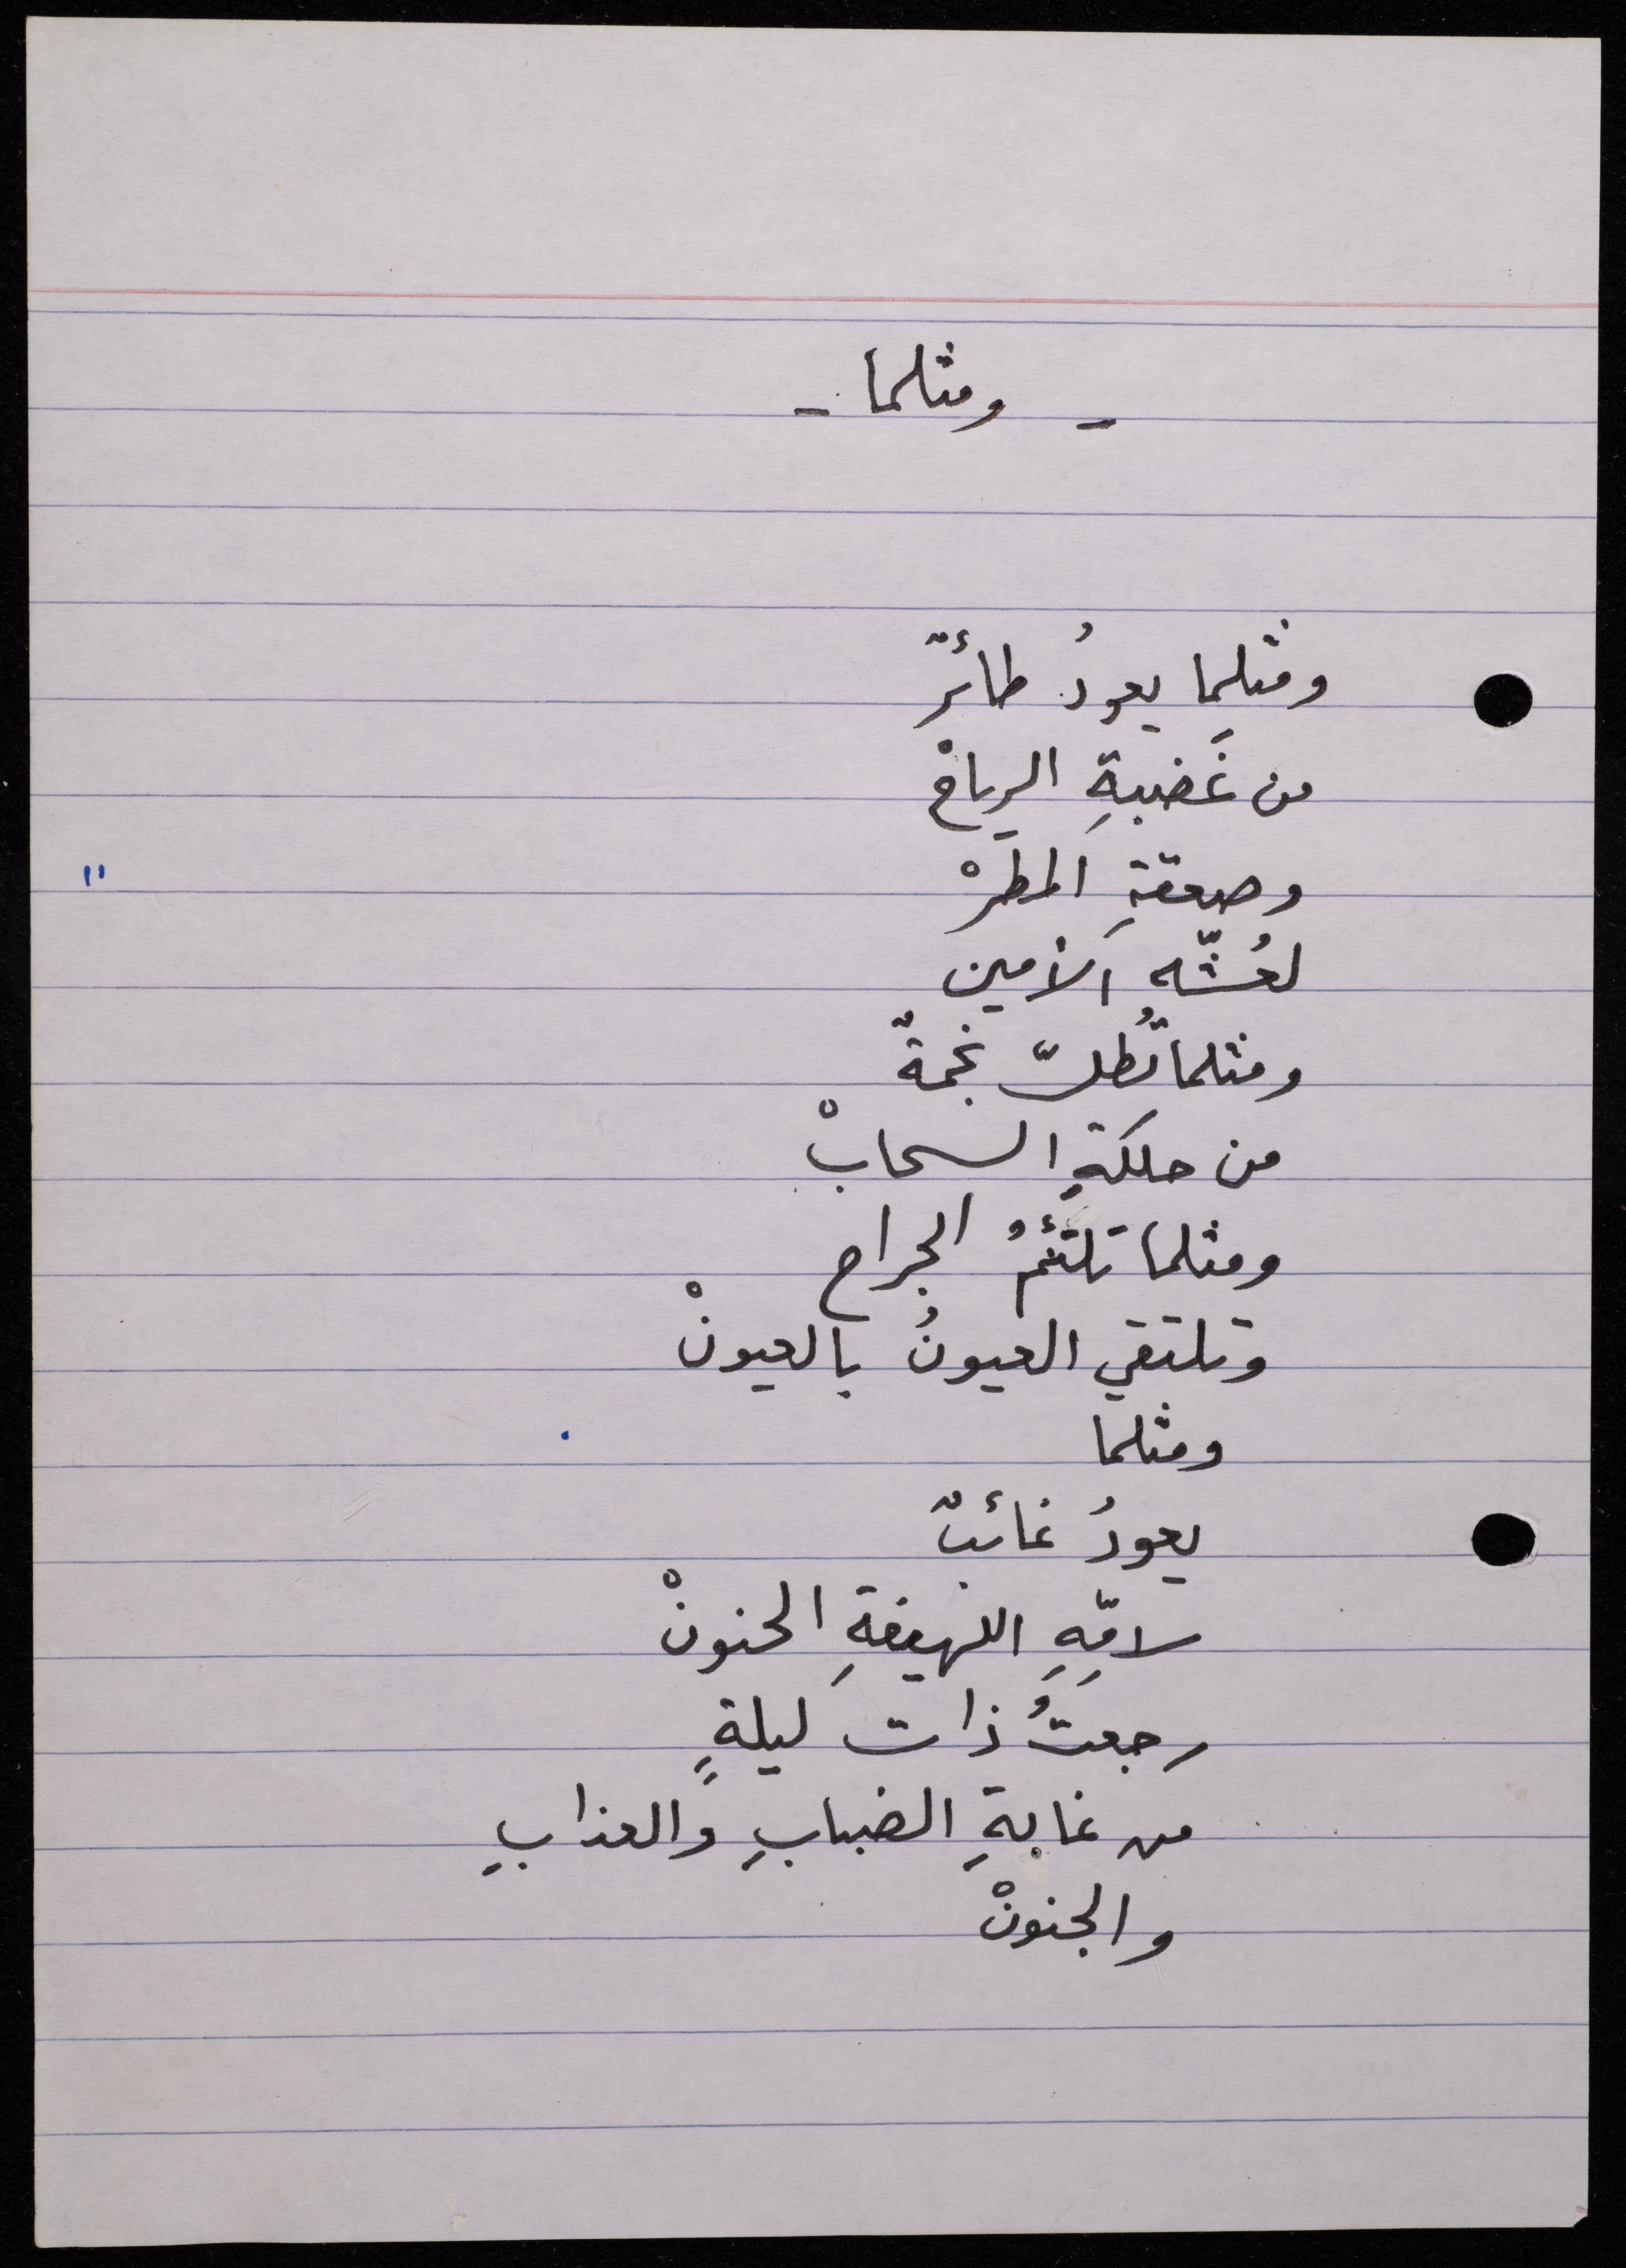 - ومثلما -
ومثلما يعودُ طائرٌ
من غَضبةِ الرياحْ
وصعقةِ المطرْ
لعُشّهِ الأمين
ومثلما تُطلّ نجمةٌ
من حلكةِ السحابْ
ومثلما تلتئمُ الجراح
وتلتقي العيونُ بالعيونْ
ومثلما
يعودُ غائبٌ
لامّهِ اللهيفةِ الحنونْ
رجعتُ ذات ليلةٍ
من غابةِ الضبابِ والعذابِ
والجنونْ